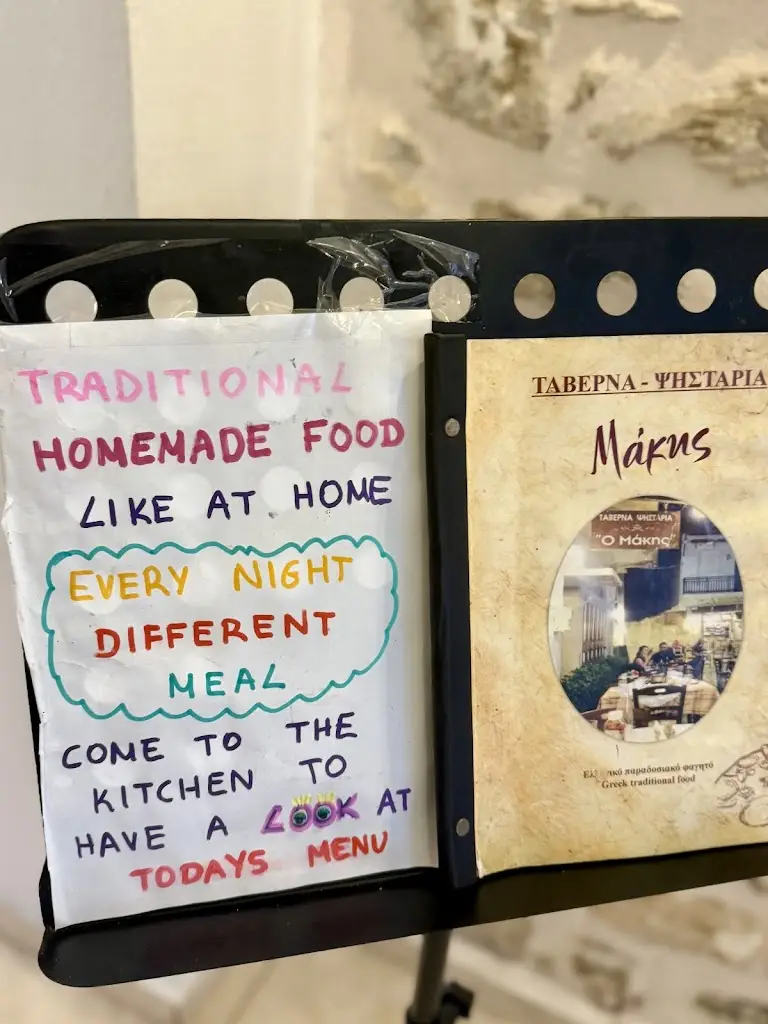 TRADITIONAL
HOMEMADE FOOD
LIKE AT HOME
EVERY NIGHT
DIFFERENT
MEAL
COME TO THE
KITCHEN TO
HAVE A LOOK AT
TODAYS MENU
ΤΑΒΕΡΝΑ - ΨΗΣΤΑΡΙΑ
Μάκης
ΤΑΒΕΡΝΑ ΨΗΣΤΑΡΙΑ
"Ο Μάκης"
παραδοσιακό φαγητό
Greek traditional food